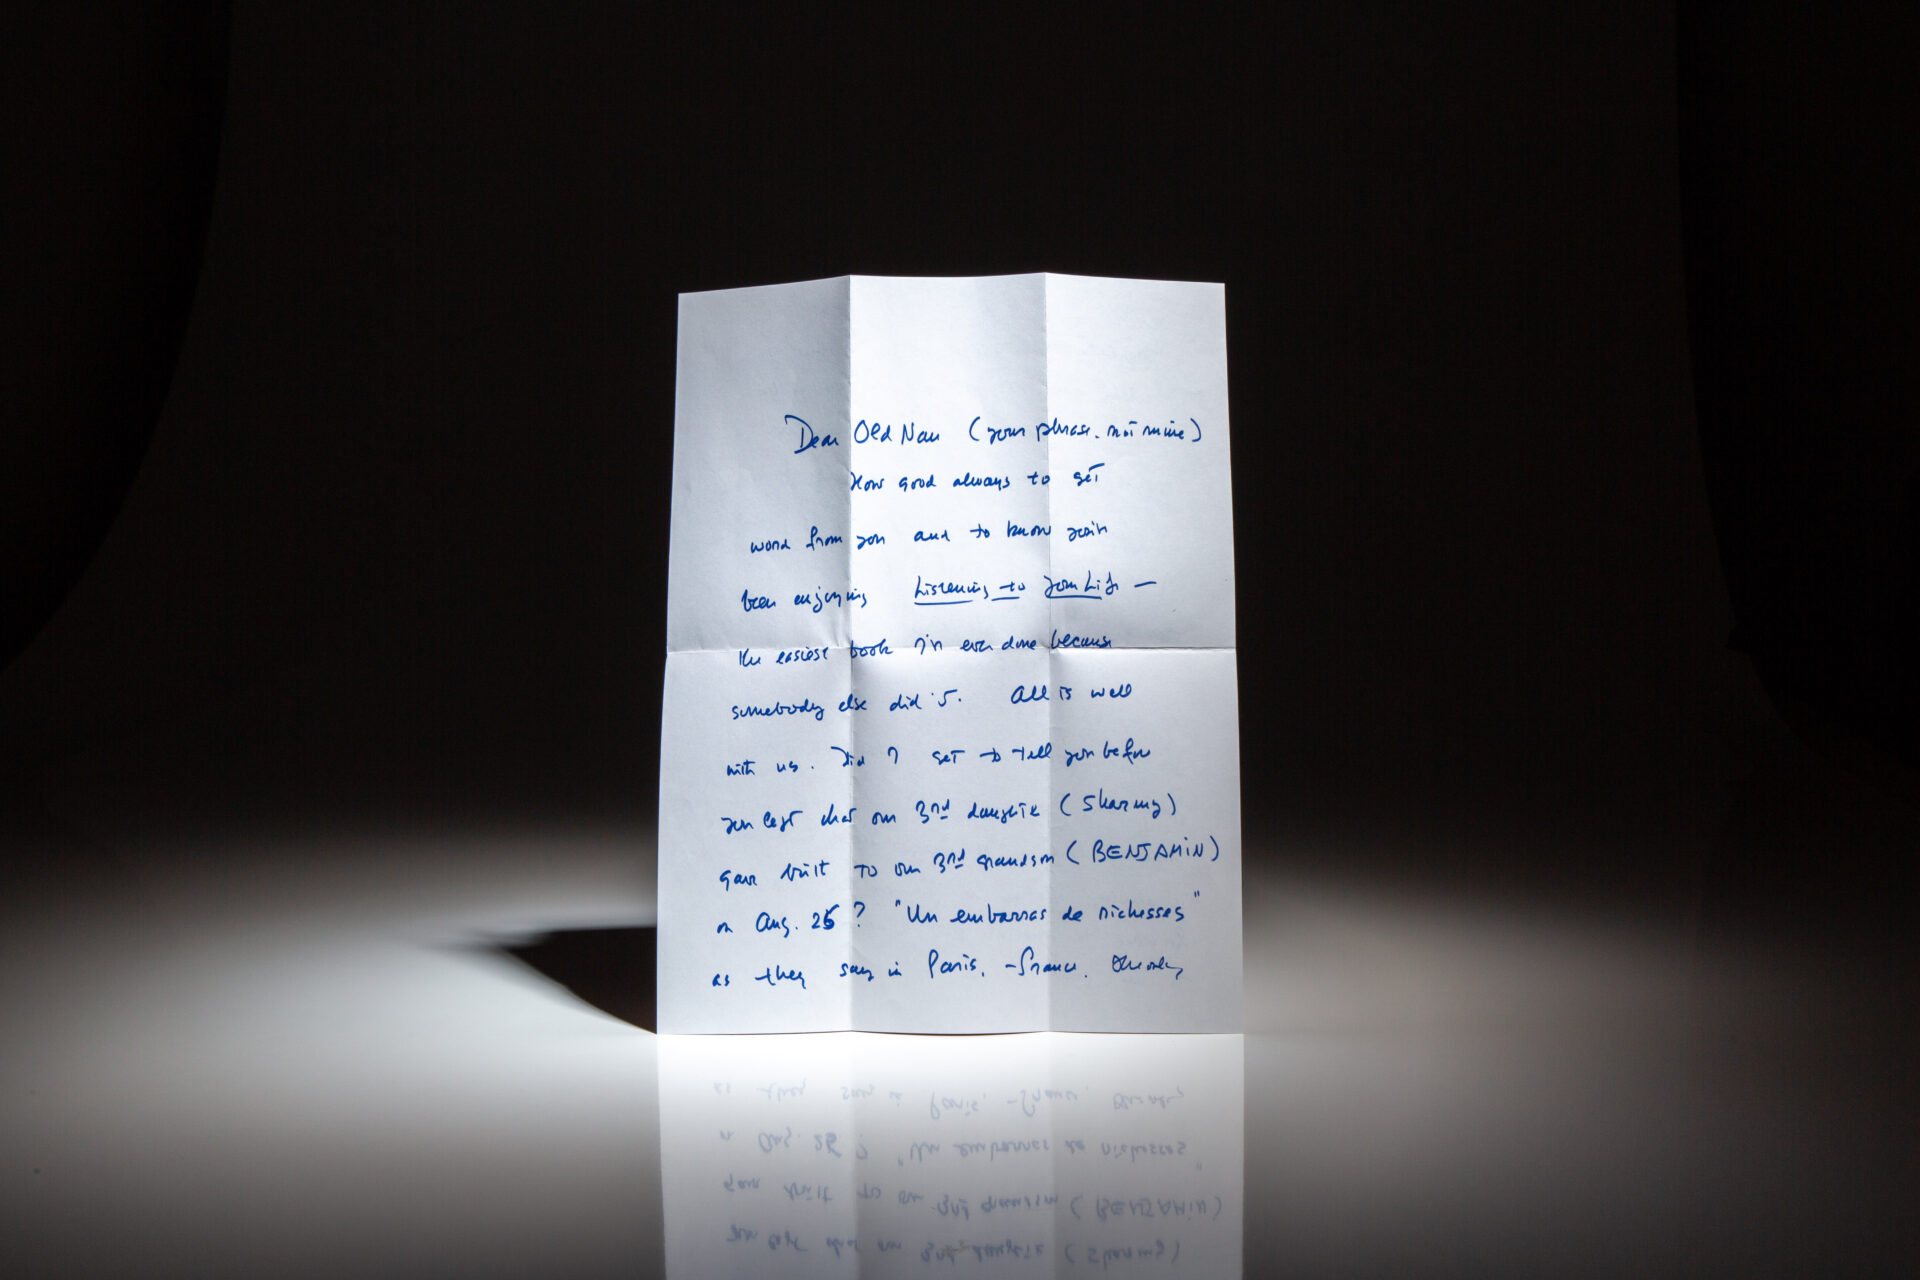 Dear Old Nan (your phrase, not mine)
How good always to get
word from you and to know you'v
been enjoying Listening to Your Life —
the easiest book I'v ever done because
somebody else did it. All is well
with us. Did I get to tell you before
you left that our 3rd daughter (Sharmy)
gave birth to our 3rd grandson (BENJAMIN)
on Aug. 25? "Un embarras de richesses"
as they say in Paris, France.